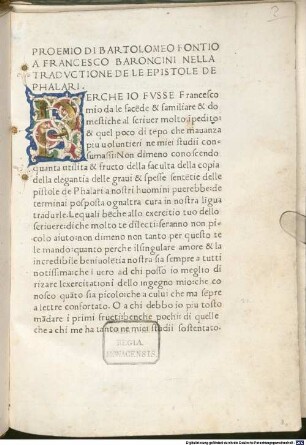 PROEMIO DI BARTOLOMEO FONTIO
A FRANCESCO BARONCINI NELLA
TRADVCTIONE DE LE EPISTOLE DE
PHALARI.
ERCHE IO FVSSE Francesco
mio da le facẽde & familiare & do
mestiche al scriuer molto ĩpedito:
& quel poco di tẽpo che mauanza
piu uoluntieri ne miei studii con
sumassi: Non dimeno conoscendo
quanta utilita & fructo della faculta della copia
della elegantia delle graui & spesse sentẽtie delle
pistole de Phalari a nostri huomini puerrebbe: de
terminai posposta ognaltra cura in nostra lĩgua
tradurle. Lequali bẽche allo exercitio tuo dello
scriuere: di che molto te dilecti: seranno non pic
colo aiuto: non dimeno non tanto per questo te
le mando: quanto perche il singulare amore & la
incredibile beniuolẽtia nostra sia sempre a tutti
notissima: che i uero ad chi posso io meglio di
rizare lexercitationi dello ingegno mio: che co
nosco quãto sia picolo: che a cului che ma sẽpre
a lettere confortato. O a chi debbo io piu tosto
mãdare i primi fructi: bẽche pochi: di quelle
che a chi me ha tanto ne miei studii sostentato.
REGIA
MONACENSIS